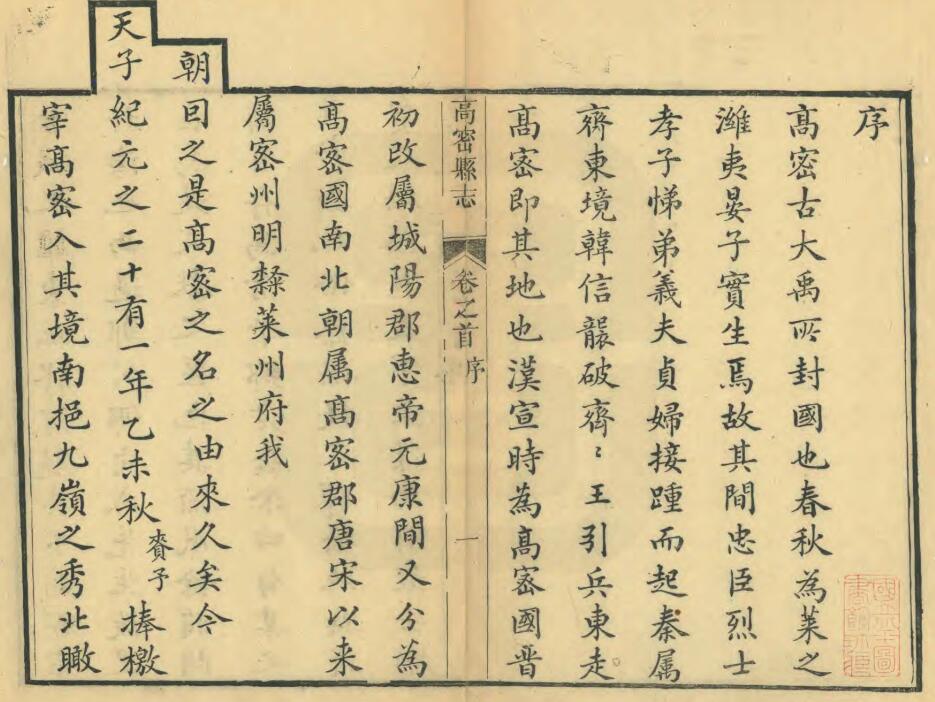 序
高密古大禹所封國也春秋為萊之
濰夷晏子實生焉故其間忠臣烈士
孝子悌弟義夫貞婦接踵而起秦属
齊東境韓信襲破齊〻王引兵東走
高密即其地也漢宣時為高密國晋
高密縣志 卷之首 序 一
初改屬城陽郡惠帝元康間又分為
高密國南北朝属高密郡唐宋以来
屬密州明隸萊州府我
朝因之是高密之名之由來久矣今
天子紀元之二十有一年乙未秋賚予捧檄
宰高密入其境南挹九嶺之秀北瞰